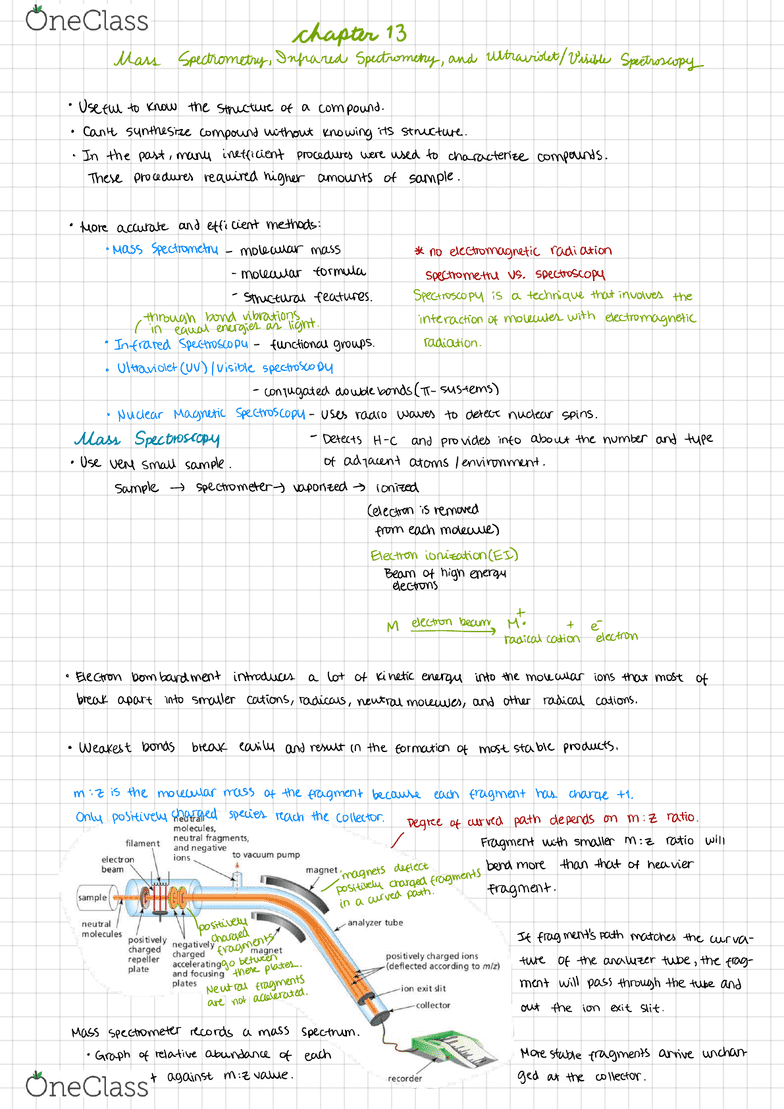 OneClass
chapter 13
Mass Spectrometry, Infrared Spectrometry, and Ultraviolet/Visible Spectroscopy
• Useful to know the structure of a compound.
• Can't synthesize compound without knowing its structure.
• In the past, many inefficient procedures were used to characterize compounds.
These procedures required higher amounts of sample.
• More accurate and efficient methods:
• Mass Spectrometry – molecular mass
- molecular formula
- structural features.
* no electromagnetic radiation
spectrometry vs. spectroscopy
Spectroscopy is a technique that involves the
interaction of molecules with electromagnetic
radiation.
through bond vibrations
in equal energies as light.
• Infrared Spectroscopy – functional groups.
• Ultraviolet (UV) / Visible spectroscopy
- conjugated double bonds (π-systems)
• Nuclear Magnetic Spectroscopy – uses radio waves to detect nuclear spins.
- Detects H-C and provides info about the number and type
of adjacent atoms / environment.
Mass Spectroscopy
• Use very small sample.
Sample → spectrometer → vaporized → ionized
(electron is removed
from each molecule)
Electron ionization (EI)
Beam of high energy
electrons
M electron beam → M+• + e-
radical cation electron
• Electron bombardment introduces a lot of kinetic energy into the molecular ions that most of
break apart into smaller cations, radicals, neutral molecules, and other radical cations.
• Weakest bonds break easily and result in the formation of most stable products.
m:z is the molecular mass of the fragment because each fragment has charge +1.
Only positively charged species reach the collector.
Degree of curved path depends on m:z ratio.
Fragment with smaller m:z ratio will
bend more than that of heavier
fragment.
neutral
molecules,
neutral fragments,
and negative
ions
filament
electron
beam
to vacuum pump
magnet
magnets deflect
positively charged fragments
in a curved path.
sample
neutral
molecules
positively
charged
repeller
plate
negatively
charged
accelerating
and focusing
plates
positively
charged
fragments
go between
these plates.
Neutral fragments
are not accelerated.
magnet
analyzer tube
positively charged ions
(deflected according to m/z)
ion exit slit
collector
recorder
If fragment's path matches the curva-
ture of the analyzer tube, the frag-
ment will pass through the tube and
out the ion exit slit.
Mass spectrometer records a mass spectrum.
• Graph of relative abundance of each
t against m:z value.
More stable fragments arrive unchan-
ged at the collector.
OneClass